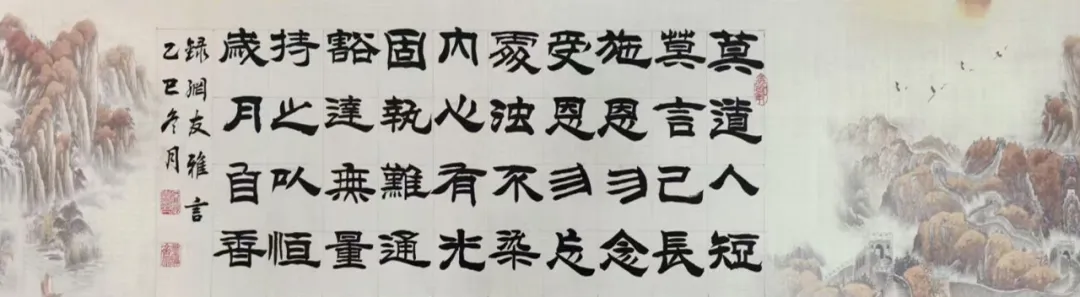 莫道人短
莫言己長
施恩勿念
受恩勿忘
處浊不染
内心有光
固執難通
豁達無量
持之以恒
歲月自香
録網友雅言
乙巳冬月